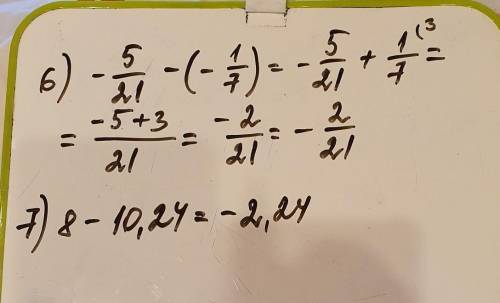 6) - 5/21 - (- 1/7) = - 5/21 + 1/7 (3 =
= -5+3/21 = -2/21 = - 2/21
7) 8 - 10,24 = -2,24